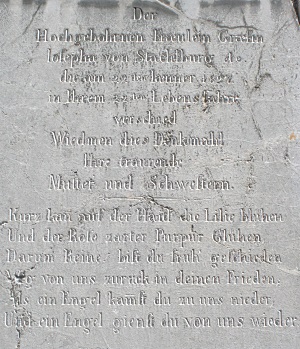 Der
Hochgebohrnen Fräulein Gräfin
Josepha von Stachlburg
die am 22ten Jänner
in Ihrem 22ten Lebens Jahre
verschied
Wiedmen dies Denkmahl
Ihre traurende
Mutter und Schwestern.
Kurz kam auf der Haid die Lilie blühen
Und der Rose zarter Purpur Glühen,
Darum Reine! bist du früh geschieden
von uns zurück in deinen Frieden.
Als ein Engel kamst du zu uns nieder,
Und ein Engel giengst du von uns wieder